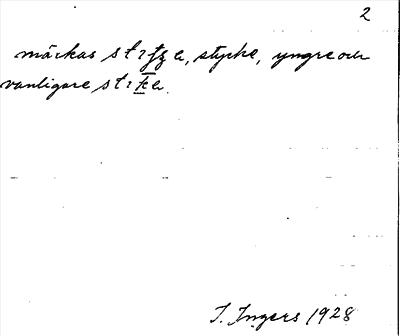 2
märkas stitze, stycke, yngre och
vanligare stike.
I. Ingers 1928